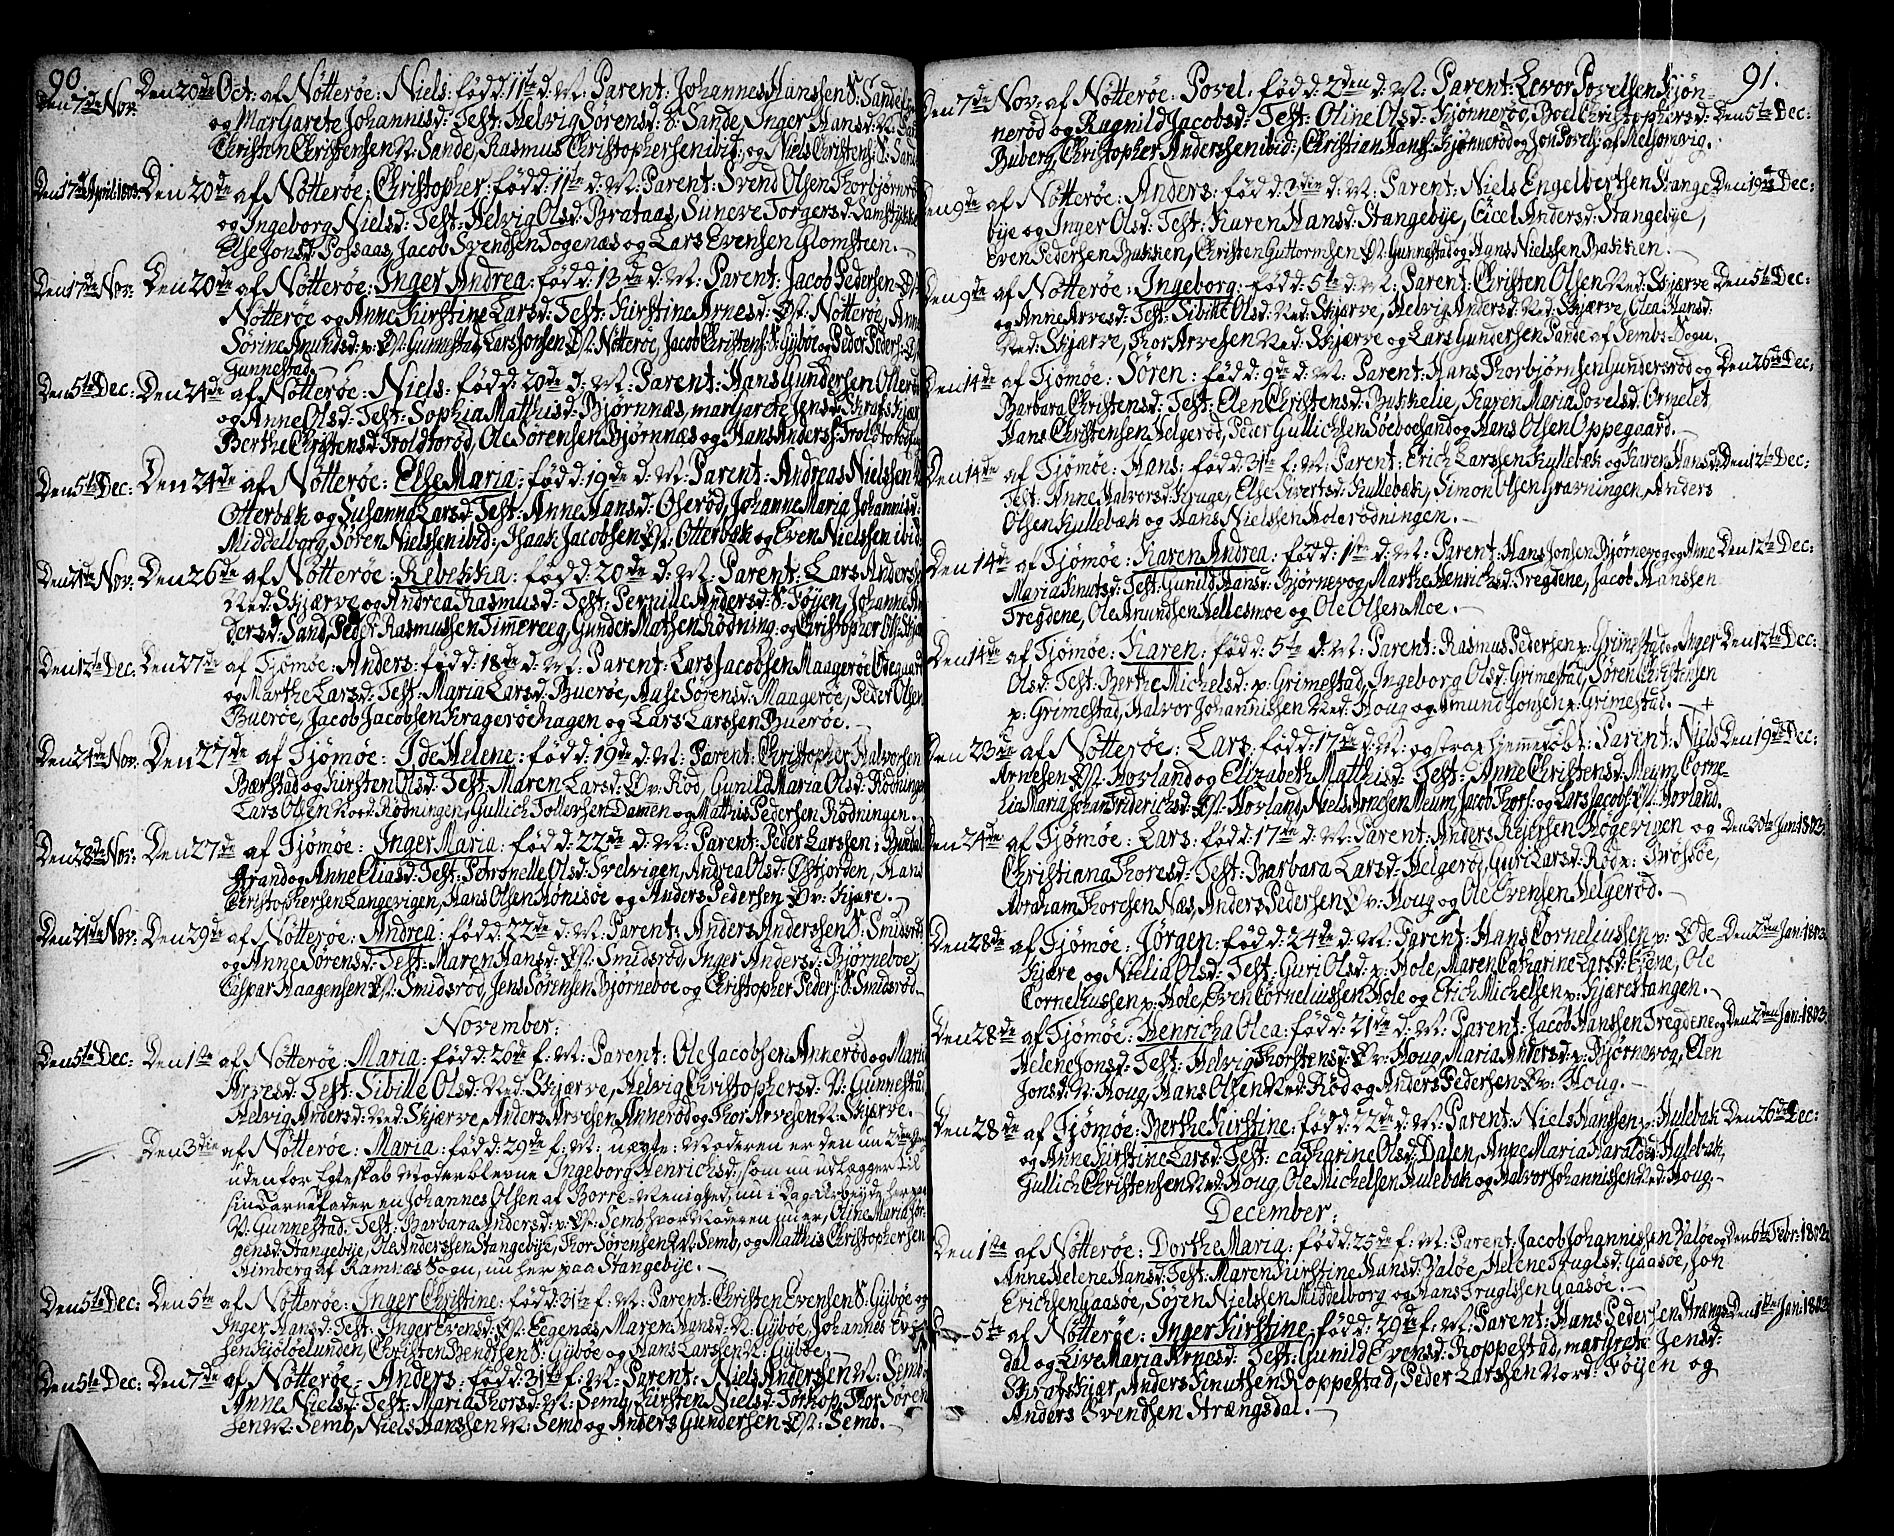 90.
Den 7de Nov: Den 20de Oct: af Nötterøe: Niels: född: 11te d: M: Parent: Johannes Hanssen S: Sande
og Margarete Johannisd: Test: Helvig Sørensd: S: Sande, Inger Hansd: N:
Christen Christensen N: Sande, Rasmus Christophersen ibid: og Niels Christens: S: Sande
Den 17de April: 1803. Den 20de af Nötterøe, Christopher: född: 11te d: M: Parent: Svend Olsen Thorbjørnrød
og Ingeborg Nielsd: Test: Helvig Olsd: Brataas, Suneve Torgersd:
Else Jonsd: Possaas, Jacob Svendsen Togenæs og Lars Evensen Glomsteen.
Den 17de Nov: Den 20de af Nötterøe: Inger Andrea: född: 13de d: M: Parent: Jacob Pedersen
Nötterøe og Anne Kirstine Larsd: Test: Kirstine Arnesd: Øst: Nötterøe, Anne
Sørine Amundsd: v: Øst: Gunnestad, Lars Jonsen Øst: Nötterøe, Jacob Christens: S: Gybøe og Peder Peders:
Gunnestad.
Den 5te Dec: Den 24de af Nötterøe: Niels: född: 20de d: M: Parent: Hans Gundersen Ollerød
og Anne Olsd: Test: Sophia Mathisd: Bjørnnæs, Margarete Jensd: Skrafskjær
Berthe Christensd: Troldtorød, Ole Sørensen Bjørnnæs og Hans Anders:
Den 5te Dec: Den 24de af Nötterøe: Else Maria: född: 19de d: M: Parent: Andreas Nielssen
Otterbæk og Susanna Larsd: Test: Anne Hansd: Oserød, Johanne Maria Johannisd:
Middelborg, Søren Nielssen ibid:, Isaak Jacobsen Øst: Otterbæk og Even Nielssen ibid:
Den 21de Nov: Den 26de af Nötterøe: Rebekka: född: 20de d: M: Parent: Lars Anders
Ned: Skjærve og Andrea Rasmusd: Test: Pernille Andersd: S: Føyen, Johanne An-
dersd: Sand, Peder Rasmussen Timmereeg, Gunder Mathsen Rødning: og Christopher
Den 12te Dec: Den 27de af Tjømøe: Anders: född: 18de d: M: Parent: Lars Jacobsen Maagerøe Ødegaard
og Marthe Larsd: Test: Maria Larsd: Buerøe, Aase Sørensd: Maagerøe, Peder Olsen
Buerøe, Jacob Jacobsen Kragerøehagen og Lars Larssen Buerøe.
Den 24de Nov: Den 27de af Tjømøe: Ide Helene: född: 19de d: M: Parent: Christopher Halvorsen
Bærstad og Kirsten Olsd: Test: Maren Larsd: Øv: Rød, Gunild Maria Olsd: Rødningen
Lars Olsen Nord: Rødningen, Gullich Tollefsen Damen og Mathis Pedersen Rødningen.
Den 28de Nov: Den 27de af Tjømøe: Inger Maria: född: 22de d: M: Parent: Peder Larssen:
og Anne Eliasd: Test: Petronelle Olsd: Svelvigen, Andrea Olsd: Østjorden, Hans
Christophersen Langevigen, Hans Olsen Hønisøe og Anders Pedersen Øv: Kjære.
Den 21de Nov: Den 29de af Nötterøe: Andrea: född: 22de d: M: Parent: Anders Anderssen S: Smidsrød
og Anne Sørensd: Test: Maren Hansd: Øst: Smidsrød, Inger Andersd: Bjørneboe,
Caspar Haagensen Øst: Smidsrød, Jens Sørensen Bjørneboe og Christopher Peders: S: Smidsrød.
November:
Den 5te Dec: Den 1ste af Nötterøe: Maria: född: 26de f: M: Parent: Ole Jacobsen Annerød og Maria
Arvesd: Test: Sibille Olsd: Ned: Skjærve, Helvig Christophersd: V: Gunnestad
Helvig Andersd: Ned: Skjærve, Anders Arvesen Annerød og Thor Arvesen N: Skjærve.
Den 3die af Nötterøe: Maria: född: 29de f: M: uægte: Moderen er den nu 2den Gang
udenfor Egteskab Moder blevne Ingeborg Henrichsd:, som nu udlægger til
sin Barnefader en Johannes Olsen af Borre-Menighed, nu i Dag-Arbejde her paa
V: Gunnestad. Test: Barbara Andersd: v: Øst: Semb hvor Moderen nu er, Oline Maria Jør-
gensd: Stangebije, Ole Anderssen Stangebije, Thor Sørensen V: Semb, og Matthis Christophersen
Himberg af Ramnæs Sogn, nu her paa Stangebije.
Den 5te Dec: Den 5te af Nötterøe: Inger Christine: född: 31te f: M: Parent: Christen Evensen S: Gybøe og
Inger Hansd: Test: Inger Evensd: Øst: Eegenæs, Maren Hansd: N: Gybøe, Johannes
sen Kjøløelunden, Christen Bendtsen S: Gybøe og Hans Larssen N: Gybøe.
Den 5te Dec: Den 7de af Nötterøe: Anders: född: 31te f: M: Parent: Niels Anderssen V: Semb
Anne Nielsd: Test: Maria Thorsd: V: Semb, Kirsten Nielsd: Torkop, Thor Søren-
sen V: Semb, Niels Hanssen V: Semb og Anders Gundersen Øst: Semb.
91.
Den 7de Nov: af Nötterøe: Povel: född: 2den d: M: Parent: Levor Povelsen Kjøn-
nerød og Ragnild Jacobsd: Test: Oline Olsd: Kjønnerød, Boel Christophersd: Den 5te Dec:
Buberg, Christopher Anderssen ibid:, Christian Hans: Kjønnerød og Jon Povels: af Melsomvig.
Den 9de af Nötterøe: Anders: född: 3die d: M: Parent: Niels Engelbertsen Stange- Den 19de Dec:
bye og Inger Olsd: Test: Karen Hansd: Stangebije, Cicel Andersd: Stangebije,
Even Pedersen Bakken, Christen Guttormsen Øst: Gunnestad og Hans Nielssen Bakken.
Den 9de af Nötterøe: Ingeborg: född: 5te d: M: Parent: Christen Olsen Ned: Skjærve Den 5te Dec:
og Anne Arvesd: Test: Sibille Olsd: Ned: Skjærve, Helvig Andersd: Ned: Skjærve, Olea Hansd:
Ned: Skjærve, Thor Arvesen Ned: Skjærve og Lars Gundersen Sande af Sembs-Sogn.
Den 14de af Tjømøe: Søren: född: 9de d: M: Parent: Hans Thorbjørnsen Gundersrød og Den 26de Dec:
Barbara Christensd: Test: Elen Christensd: Bukkelie, Karen Maria Povelsd: Ormelet
Hans Christensen Helgerød, Peder Gullichsen Søeboesand og Hans Olsen Oppegaard.
Den 14de af Tjømøe: Hans: född: 31te f: M: Parent: Erich Larssen Kullebæk og Karen Hansd: Den 12te Dec:
Test: Anne Halvorsd: Kruge, Else Sivertsd: Kullebæk, Simon Olsen Gravningen, Anders
Olsen Kullebæk og Hans Nielssen Holerødningen.
Den 14de af Tjømøe: Karen Andrea: född: 1ste d: M: Parent: Hans Jonsen Bjørnevog og Anne Den 12te Dec:
Maria Knutsd: Test: Gunild Hansd: Bjørnevog, Marthe Henrichsd: Tregdene, Jacob Hanssen
Tregdene, Ole Amundsen Hellesmoe og Ole Olsen Moe.
Den 14de af Tjømøe: Karen: född: 5te d: M: Parent: Rasmus Pedersen v: Grimestad og Inger Den 12te Dec:
Olsd: Test: Berthe Michelsd: v: Grimestad, Ingeborg Olsd: Grimestad, Søren Christensen
v: Grimestad, Halvor Johannissen Ned: Houg og Amund Jonsen v: Grimestad. +
Den 23de af Nötterøe: Lars: född: 17de d: M: og strax hjemmedöbt: Parent: Niels Den 19de Dec:
Arnesen Øst: Hovland og Elizabeth Matthisd: Test: Anne Christensd: Meum, Corne-
lia Maria Johan Friderichsd: Øst: Hovland, Niels Arnesen Meum, Jacob Thors: og Lars Jacobs: Øst: Hovland.
Den 24de af Tjømøe: Lars: född: 17de d: M: Parent: Anders Rejersen Kogevigen og Den 30te Jan: 1803.
Christiana Thoresd: Test: Barbara Larsd: Helgerød, Guri Larsd: Rød v: Brøtsøe,
Abraham Thoresen Næs, Anders Pedersen Øv: Houg og Ole Evensen Helgerød.
Den 28de af Tjømøe: Jørgen: född: 24de d: M: Parent: Hans Corneliussen v: Øde- Den 2den Jan: 1803.
Kjære og Nielia Olsd: Test: Guri Olsd: v: Hole, Maren Catharine Larsd: Ejene, Ole
Corneliussen v: Hole, Even Corneliussen Hole og Erich Michelsen v: Kjærestangen.
Den 28de af Tjømøe: Henricha Olea: född: 21de d: M: Parent: Jacob Hanssen Tregdene og Den 2den Jan: 1803.
Helene Jonsd: Test: Helvig Thorstensd: Øv: Houg, Maria Andersd: v: Bjørnevog, Elen
Jonsd: N: Houg, Hans Olsen Ned: Rød og Anders Pedersen Øv: Houg.
Den 28de af Tjømøe: Berthe Kirstine: född: 22de d: M: Parent: Niels Hanssen v: Hulebak Den 26de Dec:
og Anne Kirstine Larsd: Test: Catharine Olsd: Dalen, Anne Maria Haraldsd: Hulebak,
Gullich Christensen Ned: Houg, Ole Michelsen Hulebak og Halvor Johannissen Ned: Houg.
December:
Den 1ste af Nötterøe: Dorthe Maria: född: 25de f: M: Parent: Jacob Johannissen Valøe og Den 6te Febr: 1803.
Anne Helene Hansd: Test: Maren Kirstine Hansd: Valøe, Helene Truglsd: Gaasøe, Jon
Erichsen Gaasøe, Søren Nielssen Middelborg og Hans Truglssen Gaasøe.
Den 5te af Nötterøe: Inger Kirstine: född: 29de f: M: Parent: Hans Pedersen Strængs- Den 1ste Jan: 1803.
dal og Live Maria Arnesd: Test: Gunild Evensd: Roppestad, Margrete Jensd:
Skrafskjær, Anders Knutsen Roppestad, Peder Larssen Nord: Føyen og
Anders Svendsen Strængsdal.